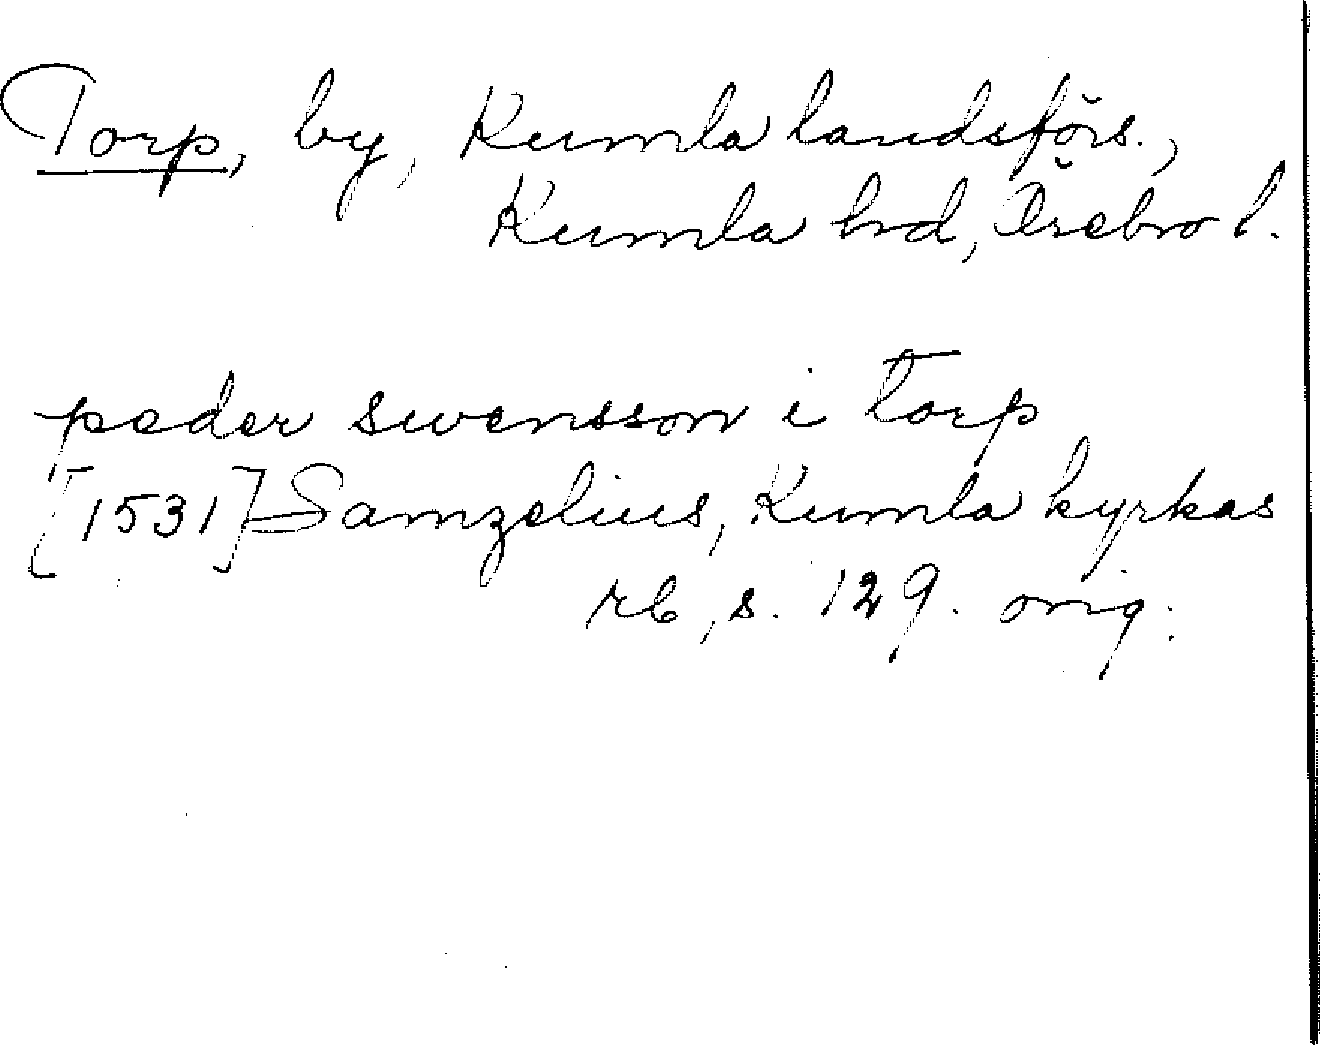 Torp, by, Kumla landsförs.,
Kumla hd, Örebro l.
peder swensson i torp
[1531] Samzelius, Kumla kyrkas
rb, s. 129. orig.